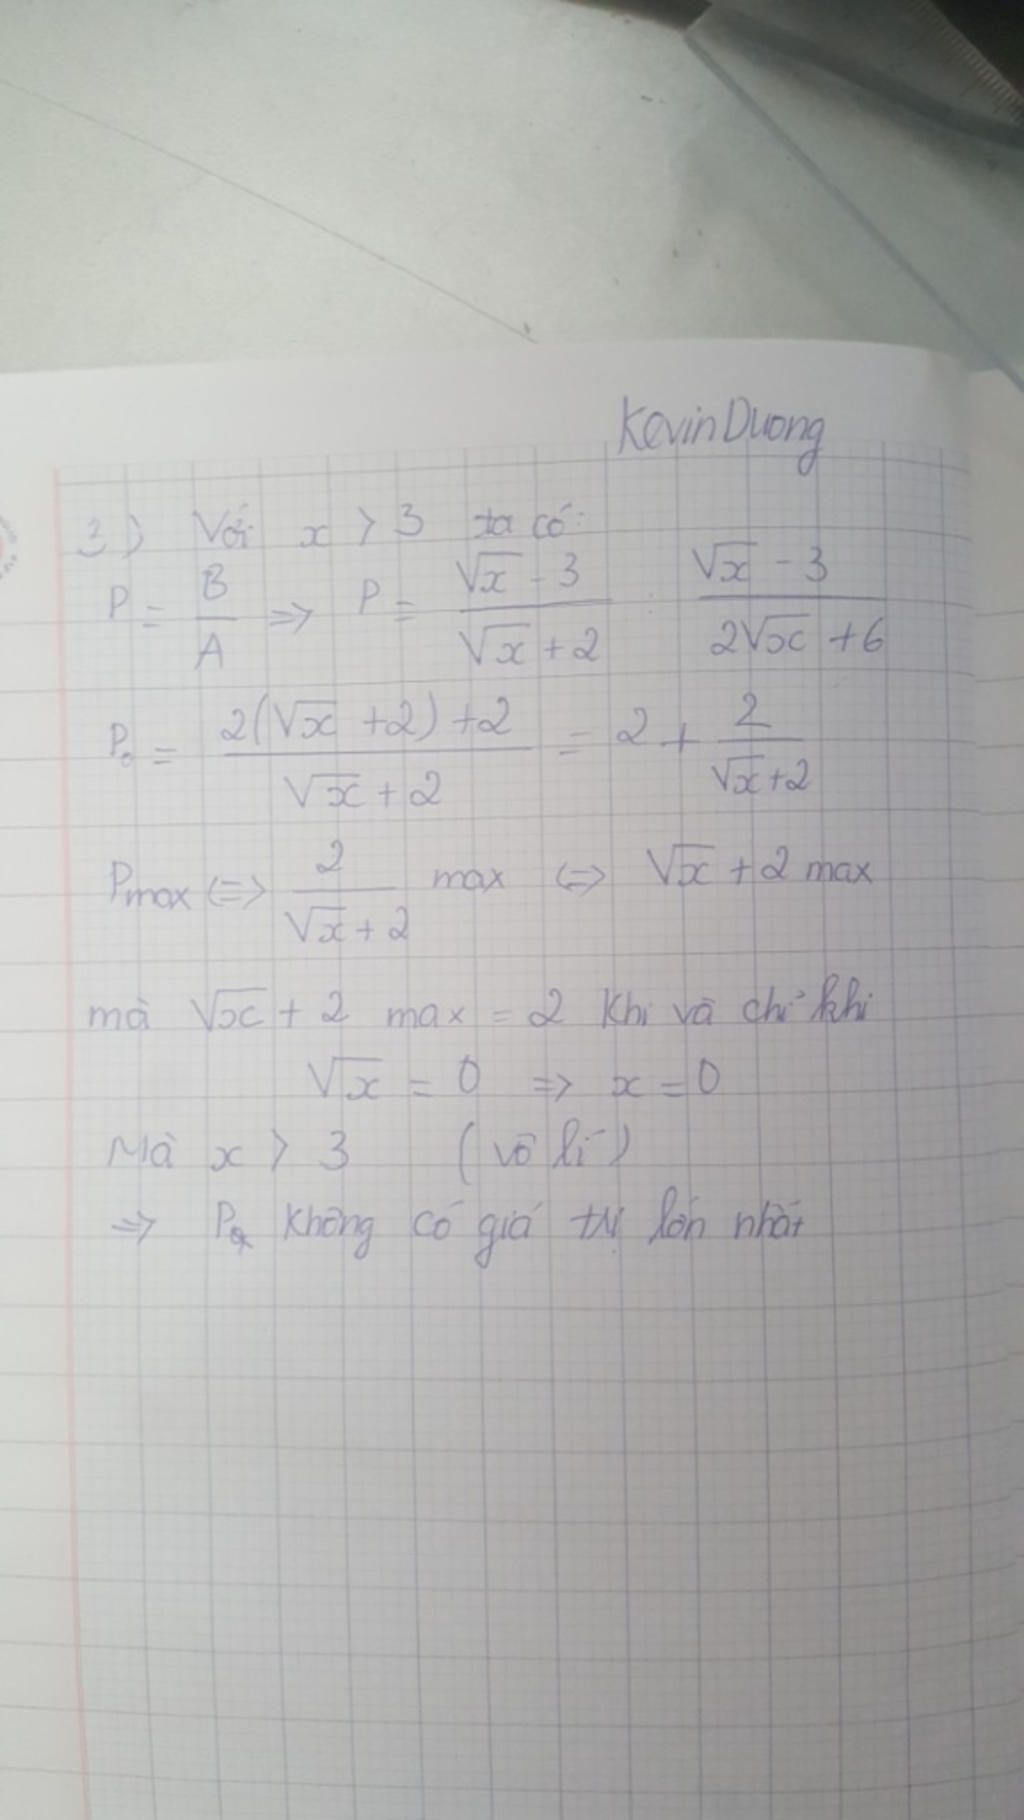 Kevin Duong
3) Với x > 3 ta có:
P = B/A => P = (√x - 3)/(√x + 2) : (√x - 3)/(2√x + 6)
P = (2(√x + 2) + 2)/(√x + 2) = 2 + 2/(√x + 2)
Pmax <=> 2/(√x + 2) max <=> √x + 2 max
mà √x + 2 max = 2 Khi và chỉ khi
√x = 0 => x = 0
Mà x > 3 (vô lí)
=> P không có giá trị lớn nhất